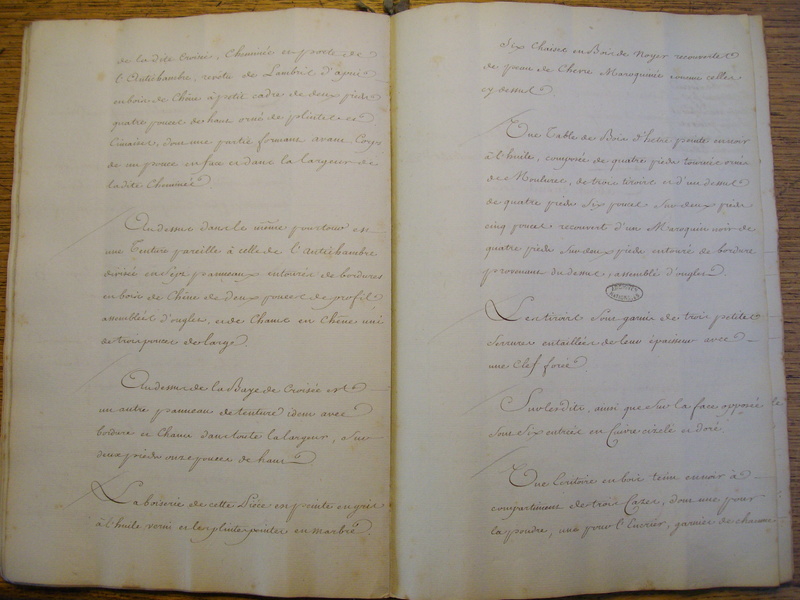 de la dite Croisée, Cheminée en porte de
l'Antichambre, revetu de Lambris d'apui
en bois de Chêne à petit cadre de deux pieds
quatre pouces de haut orné de plintes et
Cimaises, dont une partie formant avant Corps
de un pouce en face et dans la largeur de
la dite Cheminée.
Au dessus dans le même pourtour est
une Tenture pareille à celle de l'antichambre
divisée en Sept panneaux entourés de bordures
en bois de Chêne de deux pouces de profil
assemblées d'ongles, et de Champ en Chêne uni
de trois pouces de large.
Au dessus de la Baye de Croisée est
un autre panneau de tenture idem avec
bordure et Champ dans toute la largeur, a Sur
deux pieds onze pouces de haut
La boiserie de cette Pièce est peinte en gris
à l'huile verni et les plintes peintes en marbre.
Six Chaises en Bois de Noyer recouvertes
de peau de Chevre Maroquinée comme celles
cy dessus
Une Table de Bois d'hetre peinte en noir
à l'huile, composée de quatre pieds tournés ornés
de Moulures, de trois tiroirs et d'un dessus
de quatre pieds Six pouces Sur deux pieds
cinq pouces recouvert d'un Maroquin noir de
quatre pieds Sur deux pieds entouré de bordure
provenant du dessus, assemblé d'ongles.
ARCHIVES NATIONALES
Les tiroirs Sont garnis de trois petites
Serrures entaillées de leur épaisseur avec
une Clef forée.
Sur lesdits, ainsi que Sur la face opposée le
Sont Six entrées en Cuivre cizelé et doré
Une Ecritoire en bois teint en noir à
compartiment de trois Cazes, dont une pour
la poudre, une pour l'Encrier, garnies de chacune